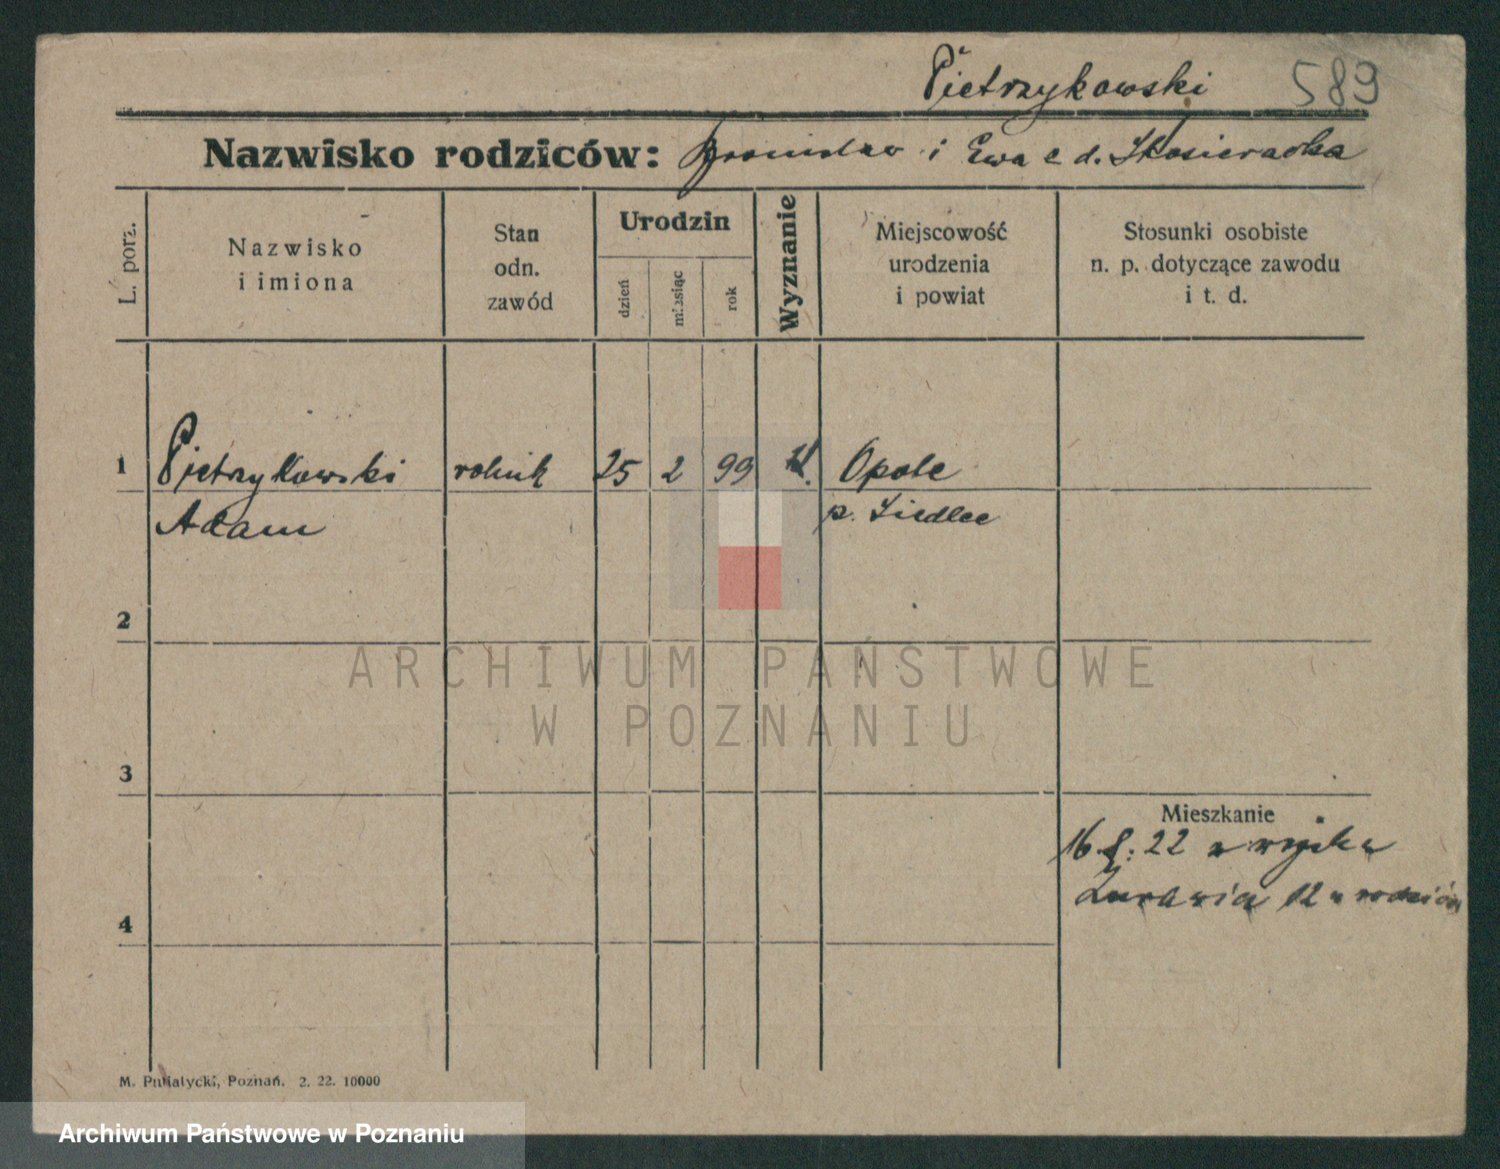 Pietrzykowski 589
Nazwisko rodziców: Bronisław i Ewa z d. Skosieracka
L. porz.
Nazwisko
i imiona
Stan
odn.
zawód
Urodzin
dzień
miesiąc
rok
Wyznanie
Miejscowość
urodzenia
i powiat
Stosunki osobiste
n. p. dotyczące zawodu
i t. d.
1 Pietrzykowski rolnik 25 2 99 Opole
Adam p. Siedlce
2
ARCHIWUM PAŃSTWOWE
W POZNANIU
3
Mieszkanie
16. 22 z wojska
Żurawia 12 u rodziców
4
M. Putiatycki, Poznań. 2. 22. 10000
Archiwum Państwowe w Poznaniu